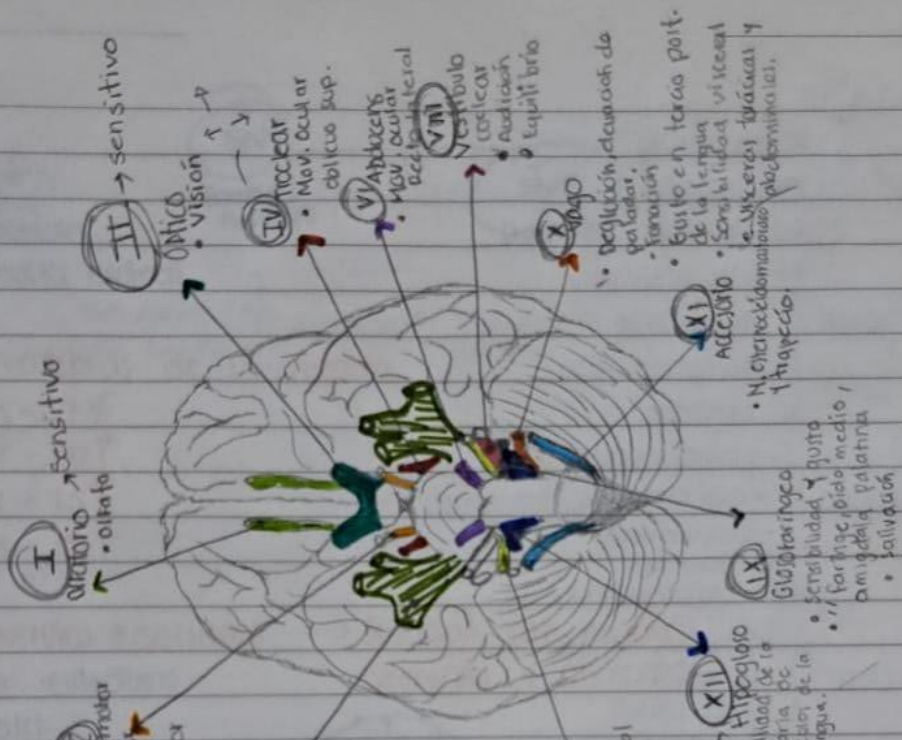 I → sensitivo
olfatorio
• olfato
II → sensitivo
óptico
• visión
IV
Troclear
• Mov. ocular
oblicuo sup.
VI
• Mov. ocular
VIII
Vestíbulo
coclear
• Audición
• Equilibrio
X
vago
• Deglución, elevación de
paladar,
fonación
• Gusto en tercio post.
de la lengua
• Sensibilidad visceral
vísceras torácicas y
abdominales.
XI
Accesorio
• M. esternocleidomastoideo
y trapecio.
IX
Glosofaríngeo
• Sensibilidad y gusto
• '' faringe, oido medio,
amigdala palatina
• Salivación
XII
Hipogloso
de la